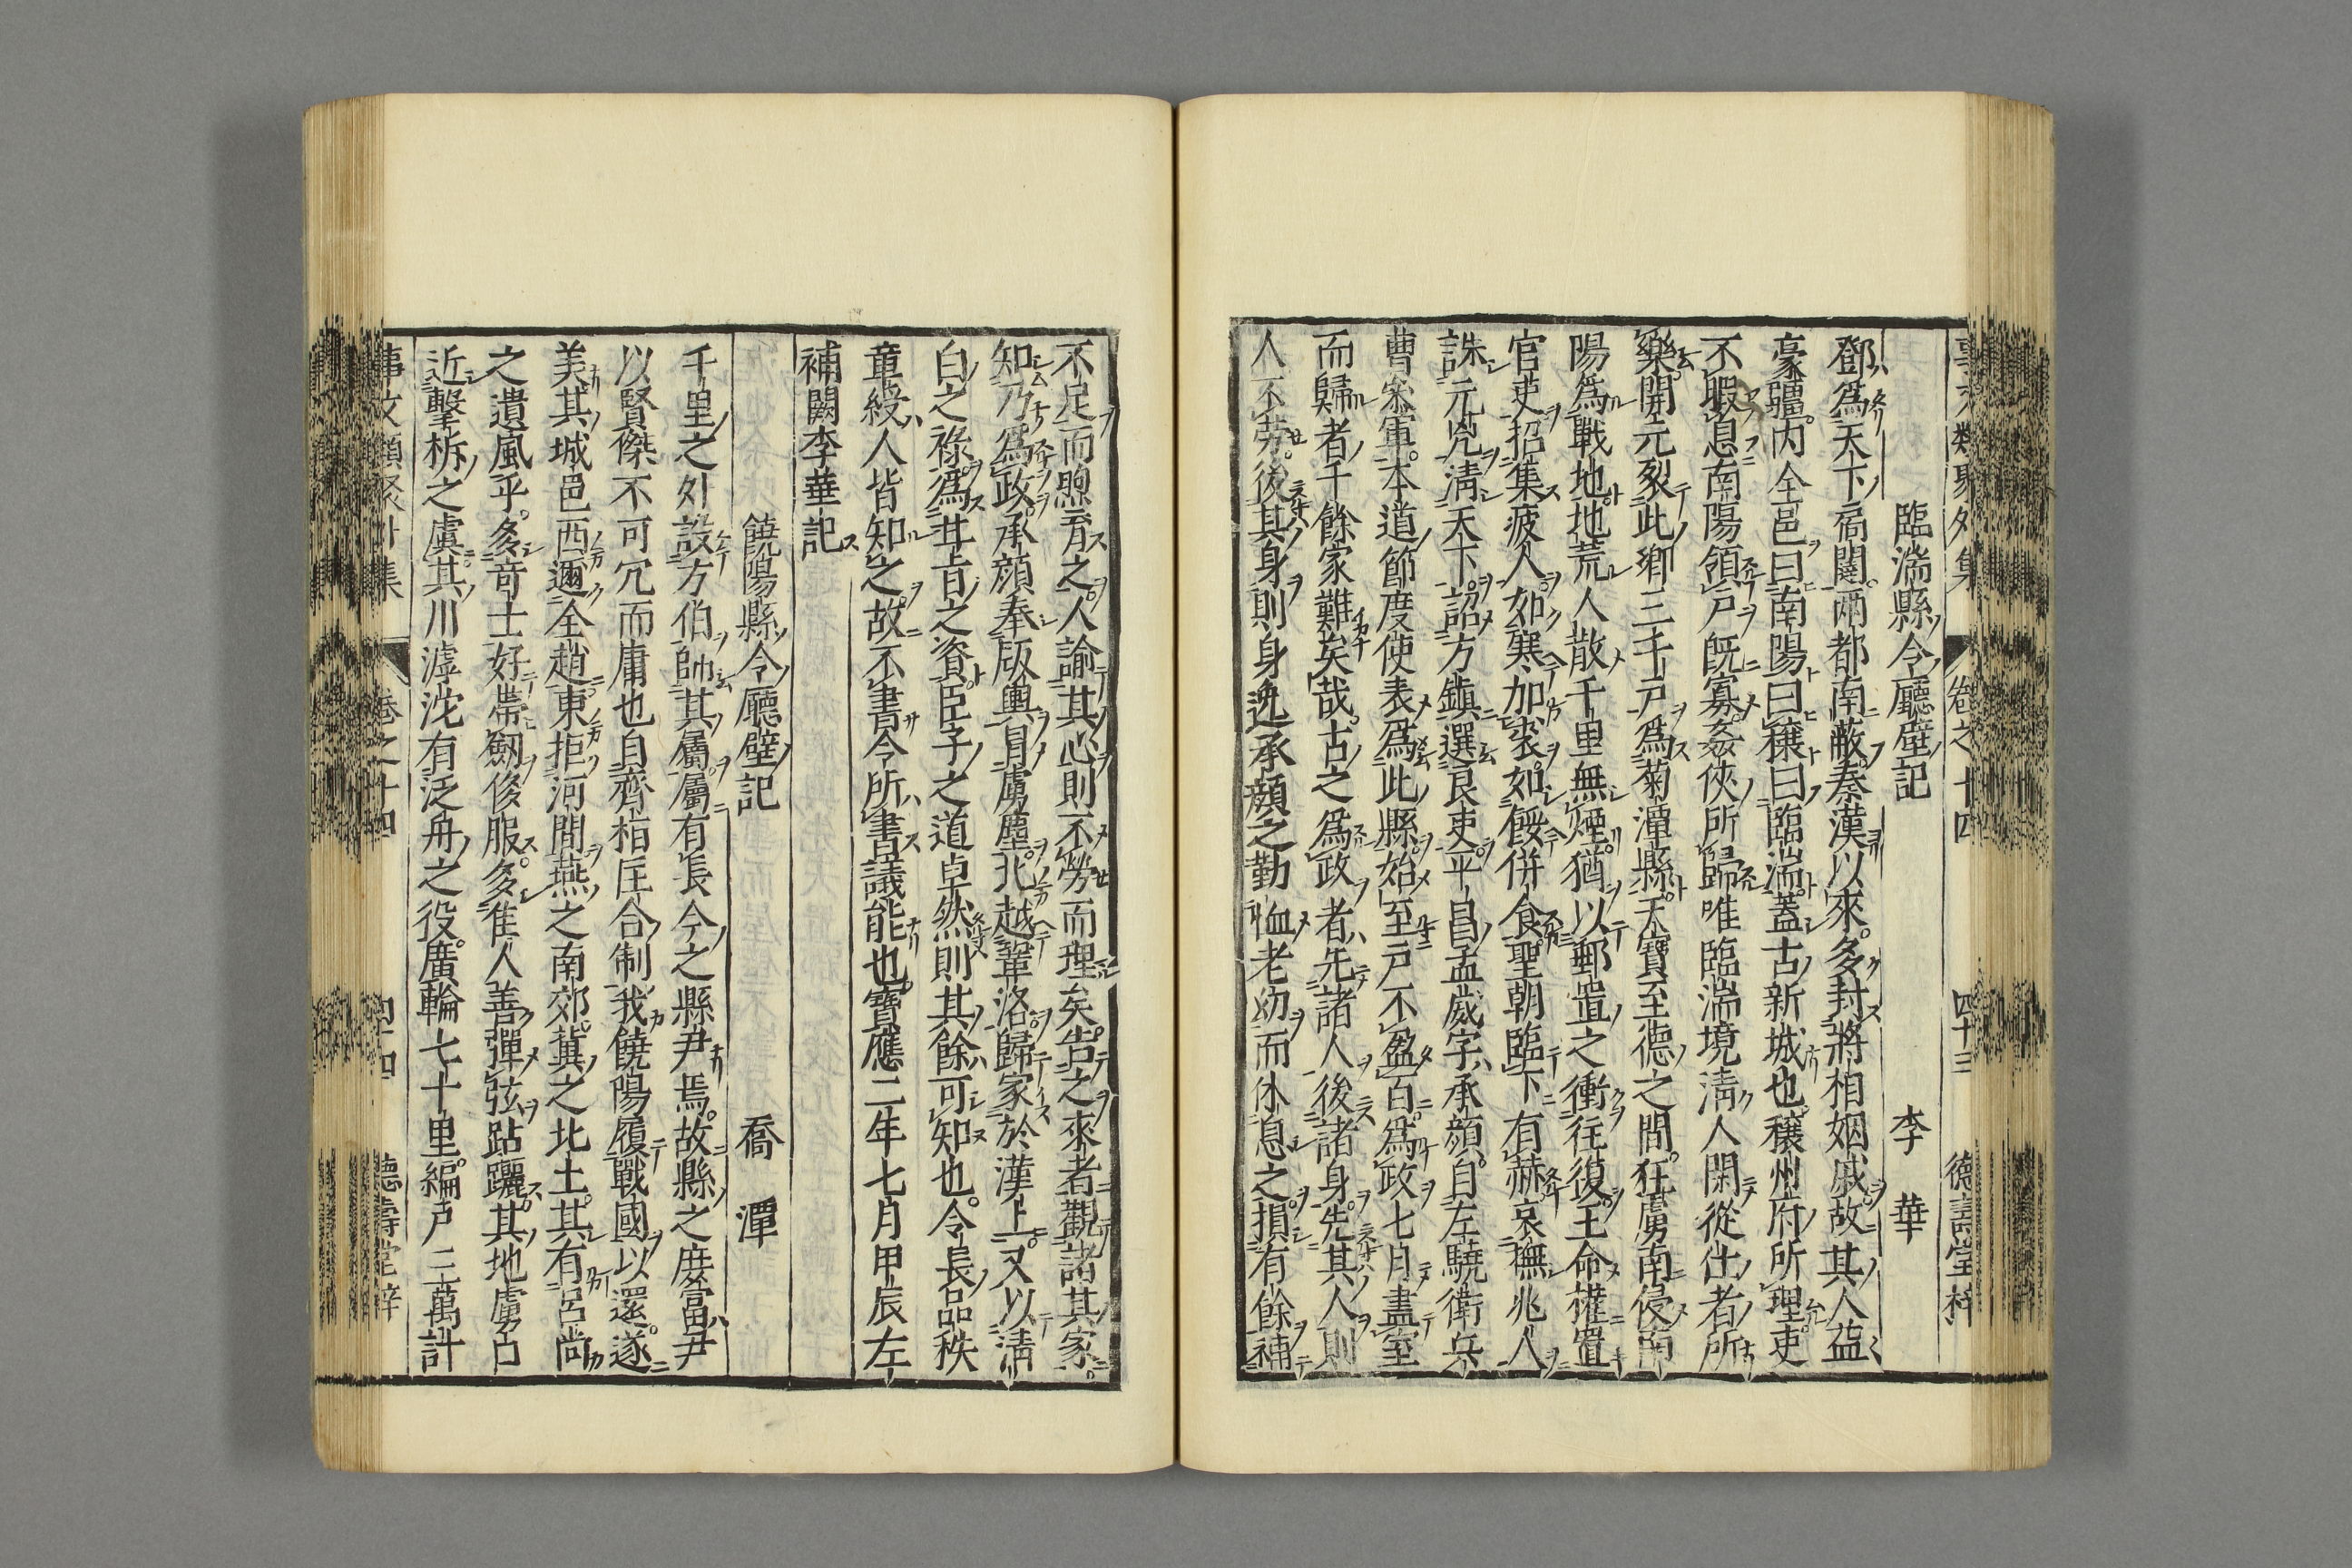 臨湍縣令廳壁記 李華
鄧爲天下扄闢兩都南蔽秦漢以來多封將相姻戚故其人益
豪疆内全邑曰南陽曰穰曰臨湍蓋古新城也穰州府所理吏
不暇息南陽領戸既寡姦俠所歸唯臨湍境淸人閑從仕者所
樂開元裂此鄉三千戸爲菊潭縣天寶至德之間狂虜南侵南
陽爲戰地地荒人散千里無煙猶以郵置之衝往復王命權置
官吏招集疲人如寒加裘如餒併食聖朝臨下有赫哀撫兆人
誅元兇淸天下詔方鎭選良吏平昌孟威字承顔自左驍衛兵
曹宋軍本道節度使表爲此縣始至戸不盈百爲政七月盡室
而歸者千餘家難矣哉古之爲政者先諸人後諸身先其人則
人不勞後其身則身逸承顔之勤恤老幼而休息之損有餘補
不足而煦育之人諭其心則不勞而理矣告之來者觀諸其家
知乃爲政承顔奉版輿冐虜塵北越鞏洛歸家於漢上又以淸
白之祿爲甘㫖之資臣子之道卓然則其餘可知也令長品秩
章綬人皆知之故不書令所書議能也寶應二年七月甲辰左
補闕李華記
饒陽縣令廳壁記 喬潭
千里之外設方伯帥其屬屬有長今之縣尹焉故縣之庶富尹
以賢傑不可冗而庸也自齊桓匡合制我饒陽履戰國以還遂
美其城邑西邇全趙東拒河間燕之南郊冀之北土其有呂尚
之遺風乎多奇士好帶劒俊服多隹人善彈弦跕躧其地虜占
近擊柝之虞其川滹沱有泛舟之役廣輪七十里編戸三萬計
事文類聚外集 卷之十四 四十四 德壽堂梓